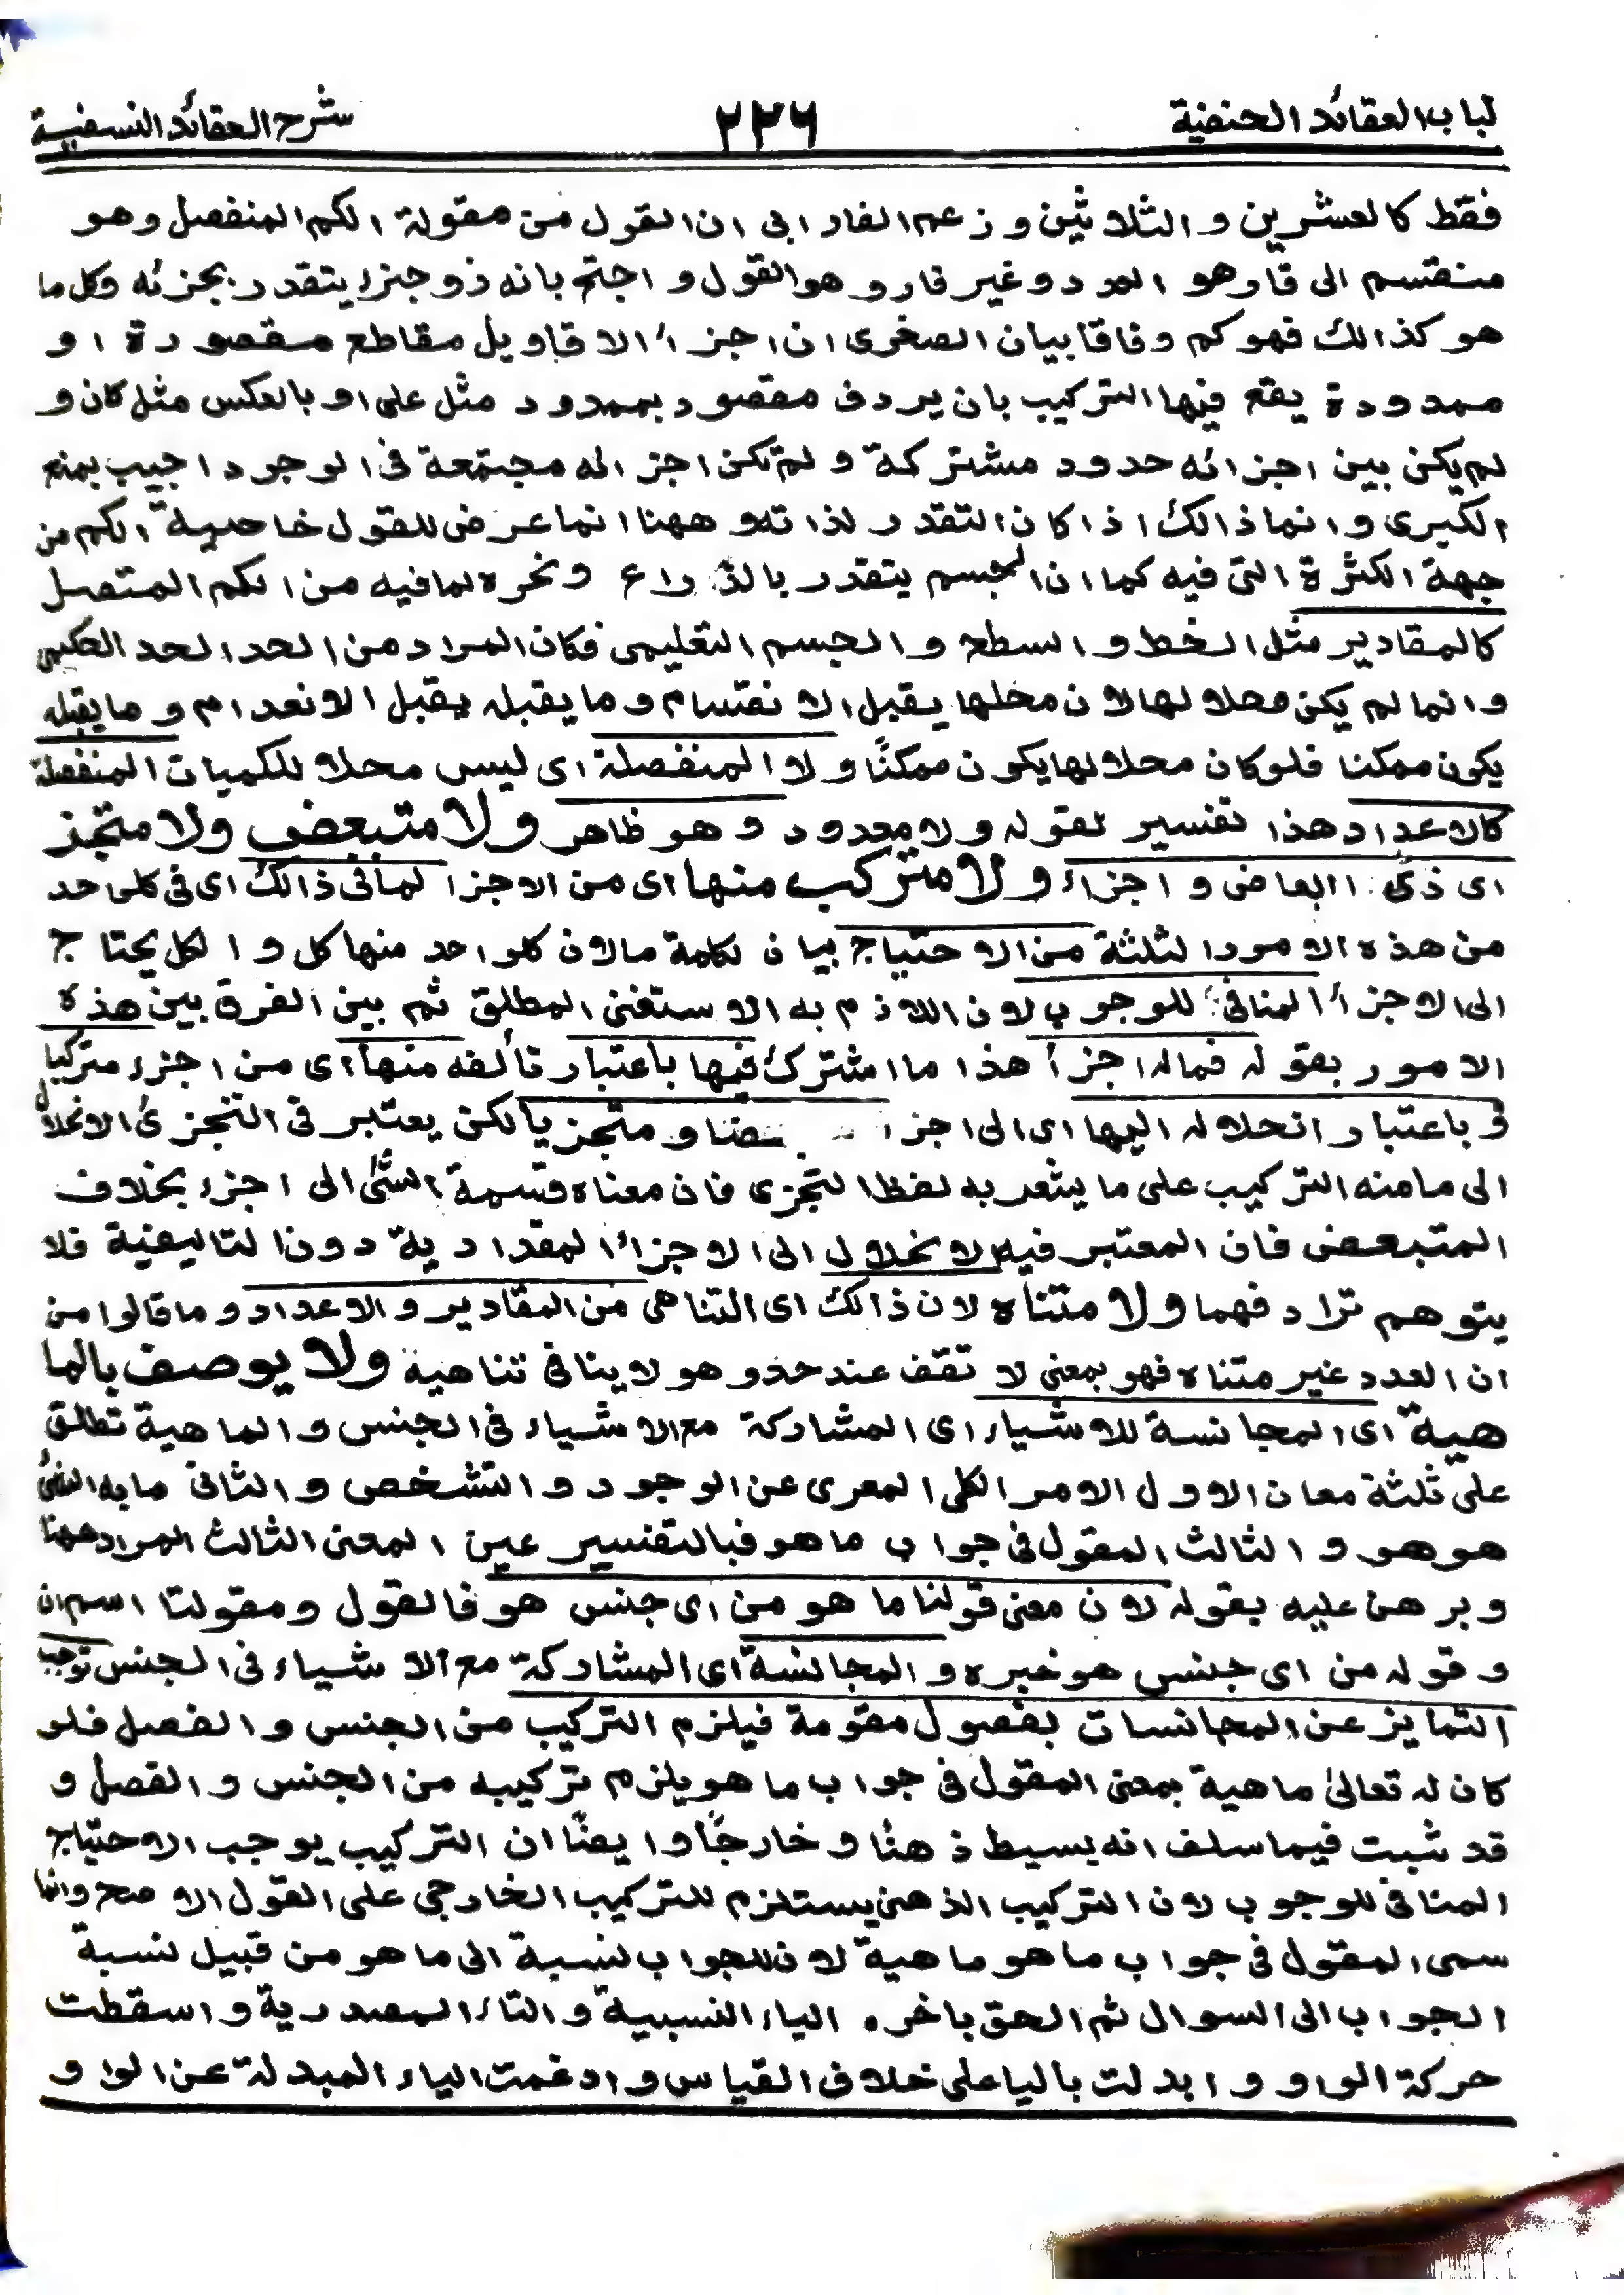 لباب العقائد الحنفية ٢٢٦ شرح العقائد النسفية
فقط كالعشرين و الثلاثين و زعم الفارابى ان القول من مقولة الكم المنفصل وهو
منقسم الى قار وهو العدد وغير قار و هو القول و احتج بانه ذو جزء يتقدر بجزئه وكل ما
هو كذالك فهو كم وفاقا بيان الصغرى ان اجزاء الاقاويل مقاطع مقصورة او
ممدودة يقع فيها التركيب بان يردف مقصور بممدود مثل على او بالعكس مثل كان و
لم يكن بين اجزائه حدود مشتركة و لم تكن اجزائه مجتمعة فى الوجود اجيب بمنع
الكبرى و انما ذالك اذا كان التقدر لذاته و ههنا انما عرض للقول خاصية الكم من
جهة الكثرة التى فيه كما ان الجسم يتقدر بالذراع ونحوه لما فيه من الكم المتصل
كالمقادير مثل الخط و السطح و الجسم التعليمى فكان المراد من الحد الحد الحكيمى
و انما لم يكن محلا لها لان محلها يقبل الانقسام و ما يقبله يقبل الانعدام و ما يقبله
يكون ممكنا فلو كان محلا لها يكون ممكنًا و لا المنفصلة اى ليس محلا للكميات المنفصلة
كالاعداد هذا تفسير لقوله ولا محدود و هو ظاهر ولا متبعض ولا متجز
اى ذى ابعاض و اجزاء ولا متركب منها اى من الاجزاء لما فى ذالك اى فى كلواحد
من هذه الامور الثلثة من الاحتياج بيان لكلمة ما لان كلواحد منها كل و الكل يحتاج
الى الاجزاء المنافى للوجوب لان اللازم به الاستغنى المطلق ثم بين الفرق بين هذه
الامور بقوله فماله اجزأ هذا ما اشترك فيها باعتبار تألفه منها اى من اجزء متركبا
و باعتبار انحلاله اليها اى الى اجزاء و متجزيا لكن يعتبر فى التجزئ الانحلال
الى ما منه التركيب على ما يشعر به لفظ التجزى فان معناه قسمة الشئ الى اجزء بخلاف
المتبعض فان المعتبر فيه الانحلال الى الاجزاء المقدارية دون التاليفية فلا
يتوهم ترادفهما ولا متناه لان ذالك اى التناهى من المقادير و الاعداد و ما قالوا من
ان العدد غير متناه فهو بمعنى لا تقف عند حد و هو لا ينافى تناهية ولا يوصف بالما
هية اى المجانسة للاشياء اى المشاركة مع الاشياء فى الجنس و الماهية تطلق
على ثلثة معان الاول الامر الكلى المعرى عن الوجود و التشخص و الثانى ما به الشئ
هو هو و الثالث المقول فى جواب ما هو فبالتفسير عين المعنى الثالث المراد ههنا
و برهن عليه بقوله لان معنى قولنا ما هو من اى جنس هو فالقول ومقولتا اسم ان
و قوله من اى جنس هو خبره و المجانسة اى المشاركة مع الاشياء فى الجنس توجب
التمايز عن المجانسات بفصول مقومة فيلزم التركيب من الجنس و الفصل فلو
كان له تعالىٰ ماهية بمعنى المقول فى جواب ما هو يلزم تركيبه من الجنس و الفصل و
قد ثبت فيما سلف انه بسيط ذهنًا و خارجًا و ايضًا ان التركيب يوجب الاحتياج
المنافى للوجوب لان التركيب الذهنى يستلزم للتركيب الخارجى على القول الاصح وانما
سمى المقول فى جواب ما هو ماهية لان للجواب لنسبة الى ما هو من قبيل نسبة
الجواب الى السوال ثم الحق باخره الياء النسبية و التاء المصدرية و اسقطت
حركة الواو و ابدلت باليا على خلاف القياس و ادغمت الياء المبدلة عن الواو